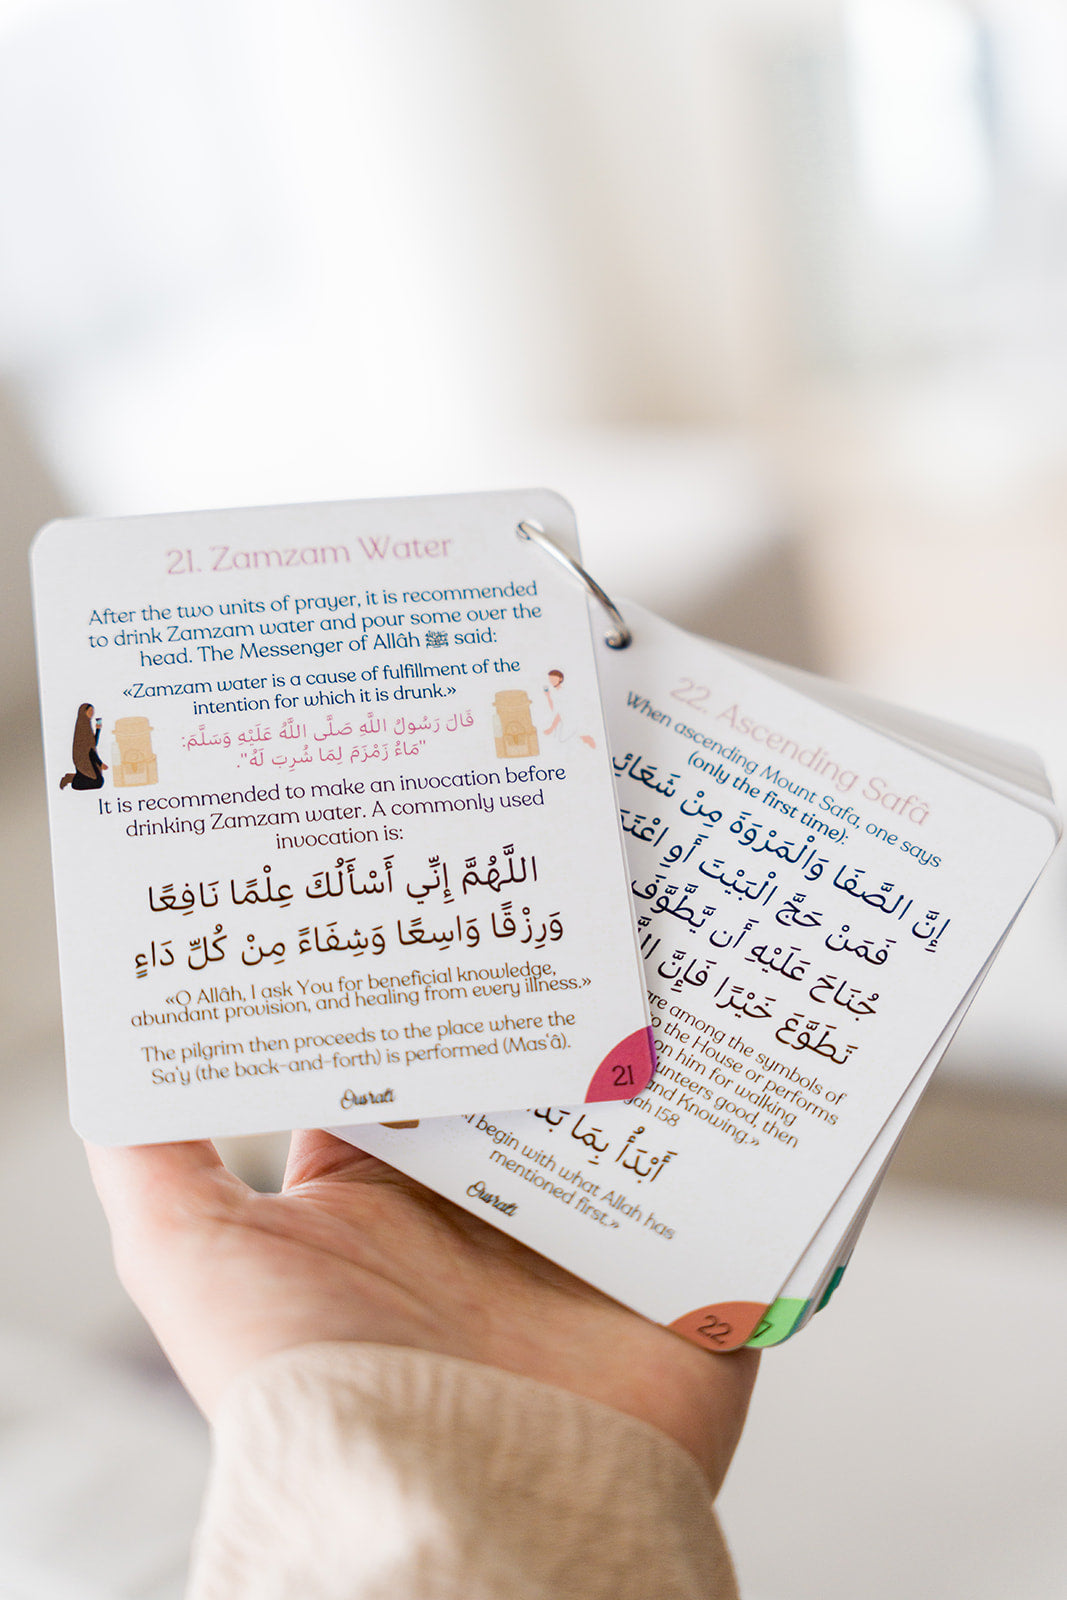 21. Zamzam Water
After the two units of prayer, it is recommended
to drink Zamzam water and pour some over the
head. The Messenger of Allâh ﷺ said:
«Zamzam water is a cause of fulfillment of the
intention for which it is drunk.»
قَالَ رَسُولُ اللَّهِ صَلَّى اللَّهُ عَلَيْهِ وَسَلَّمَ:
"مَاءُ زَمْزَمَ لِمَا شُرِبَ لَهُ".
It is recommended to make an invocation before
drinking Zamzam water. A commonly used
invocation is:
اللَّهُمَّ إِنِّي أَسْأَلُكَ عِلْمًا نَافِعًا
وَرِزْقًا وَاسِعًا وَشِفَاءً مِنْ كُلِّ دَاءٍ
«O Allâh, I ask You for beneficial knowledge,
abundant provision, and healing from every illness.»
The pilgrim then proceeds to the place where the
Sa'y (the back-and-forth) is performed (Mas'â).
Ousrati
21
22. Ascending Safâ
When ascending Mount Safa, one says
(only the first time):
إِنَّ الصَّفَا وَالْمَرْوَةَ مِنْ شَعَائِ
فَمَنْ حَجَّ الْبَيْتَ أَوِ اعْتَمَ
جُنَاحَ عَلَيْهِ أَن يَطَّوَّفَ
تَطَوَّعَ خَيْرًا فَإِنَّ
are among the symbols of
to the House or performs
on him for walking
unteers good, then
and Knowing.»
ah 158
أَبْدَأُ بِمَا بَدَأَ
begin with what Allah has
mentioned first.»
Ousrati
22
7